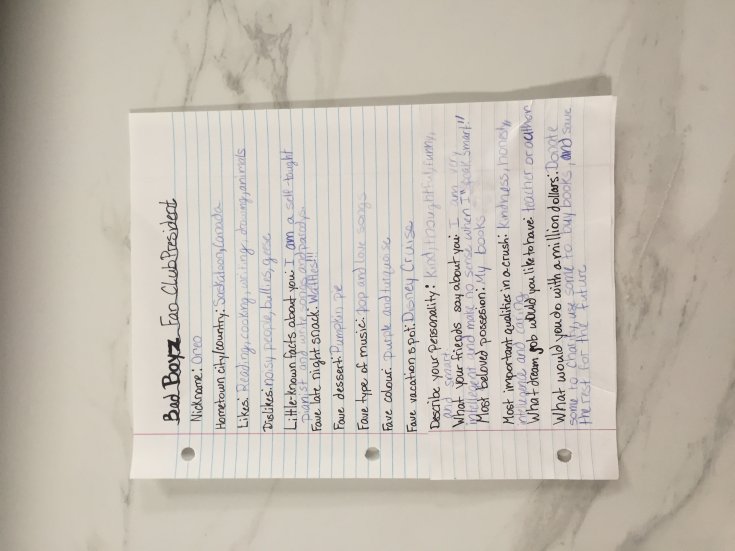 Bad Boyz Fan Club President
Nickname: Oreo
Hometown city/country: Saskatoon, Canada
Likes: Reading, cooking, writing, drawing, animals
Dislikes: noisy people, bullies, geese
Little-known facts about you: I am a self-taught
pianist and write songs and parodys.
Fave late night snack: Waffles!!!
Fave dessert: Pumpkin pie
Fave type of music: pop and love songs
Fave colour: purple and turquoise
Fave vacation spot: Disney Cruise
Describe your personality: Kind, thoughtful, funny,
and smart
What your friends say about you: I am very
intelligent and make no sense when I speak smart!!
Most beloved possession: My books
Most important qualities in a crush: Kindness, honesty,
intelligence and caring
What dream job would you like to have: teacher or author
What would you do with a million dollars: Donate
some to charity, use some to buy books, and save
the rest for the future